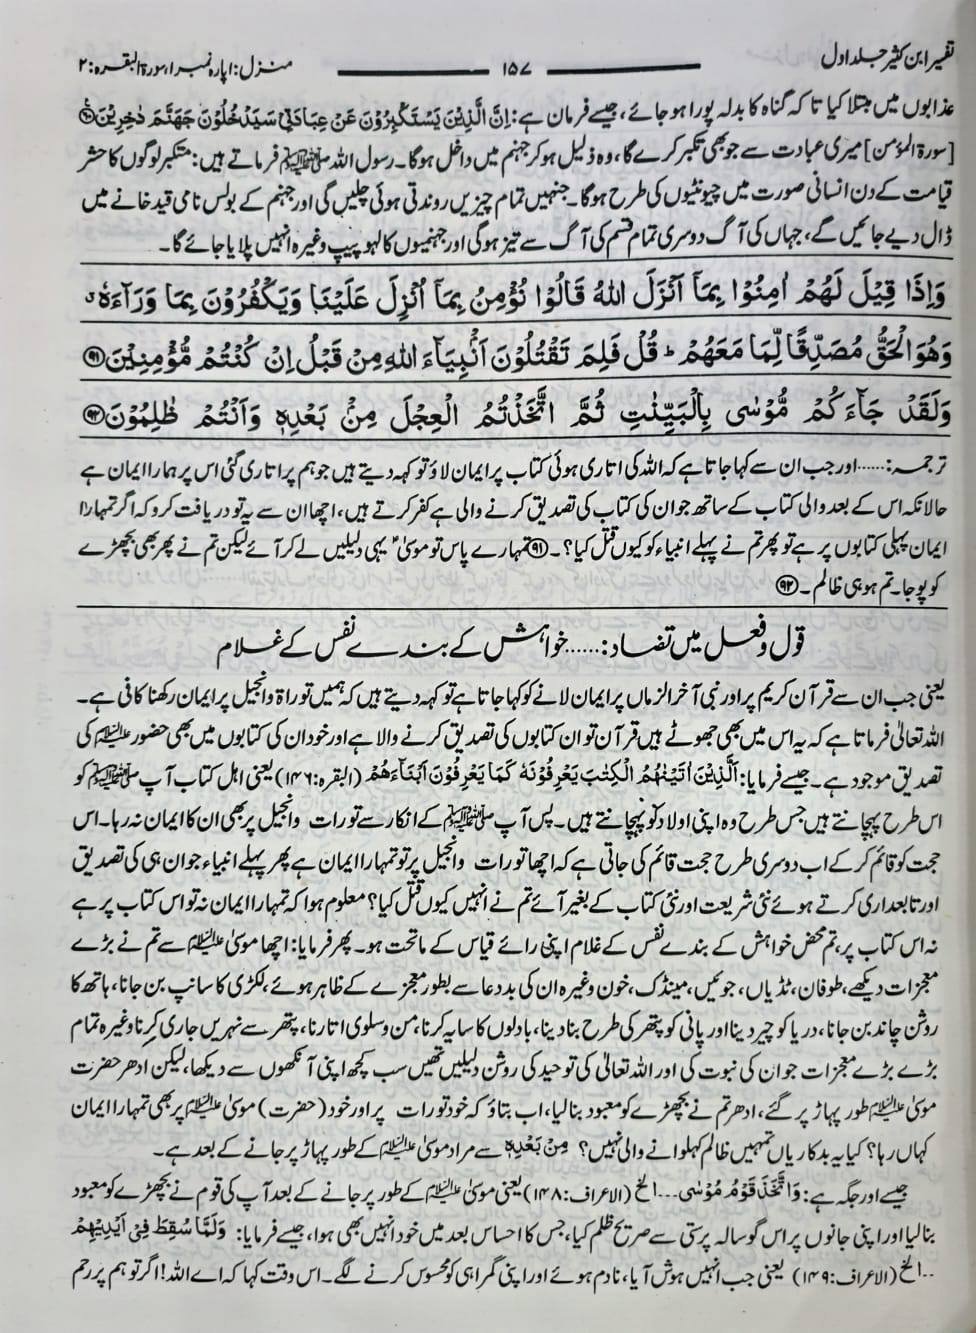 تفسیر ابن کثیر جلد اول ۱۵۷ منزل: ۱ پارہ نمبر ۱، سورۃ البقرہ: ۲
عذابوں میں مبتلا کیا تا کہ گناہ کا بدلہ پورا ہو جائے، جیسے فرمان ہے: اِنَّ الَّذِيْنَ يَسْتَكْبِرُوْنَ عَنْ عِبَادَتِيْ سَيَدْخُلُوْنَ جَهَنَّمَ دٰخِرِيْنَ ۶۰
[سورۃ المؤمن] میری عبادت سے جو بھی تکبر کرے گا، وہ ذلیل ہو کر جہنم میں داخل ہوگا۔ رسول اللہ ﷺ فرماتے ہیں: متکبر لوگوں کا حشر
قیامت کے دن انسانی صورت میں چیونٹیوں کی طرح ہوگا۔ جنہیں تمام چیزیں روندتی ہوئی چلیں گی اور جہنم کے بولس نامی قید خانے میں
ڈال دیے جائیں گے، جہاں کی آگ دوسری تمام قسم کی آگ سے تیز ہوگی اور جہنمیوں کا لہو پیپ وغیرہ انہیں پلایا جائے گا۔
وَاِذَا قِيْلَ لَهُمْ اٰمِنُوْا بِمَآ اَنْزَلَ اللهُ قَالُوْا نُؤْمِنُ بِمَآ اُنْزِلَ عَلَيْنَا وَيَكْفُرُوْنَ بِمَا وَرَآءَهٗ ۤ
وَهُوَ الْحَقُّ مُصَدِّقًا لِّمَا مَعَهُمْ ؕ قُلْ فَلِمَ تَقْتُلُوْنَ اَنْۢبِيَآءَ اللهِ مِنْ قَبْلُ اِنْ كُنْتُمْ مُّؤْمِنِيْنَ ۹۱
وَلَقَدْ جَآءَكُمْ مُّوْسٰى بِالْبَيِّنٰتِ ثُمَّ اتَّخَذْتُمُ الْعِجْلَ مِنْۢ بَعْدِهٖ وَاَنْتُمْ ظٰلِمُوْنَ ۹۲
ترجمہ:...... اور جب ان سے کہا جاتا ہے کہ اللہ کی اتاری ہوئی کتاب پر ایمان لاؤ تو کہہ دیتے ہیں جو ہم پر اتاری گئی اس پر ہمارا ایمان ہے
حالانکہ اس کے بعد والی کتاب کے ساتھ جو ان کی کتاب کی تصدیق کرنے والی ہے کفر کرتے ہیں، اچھا ان سے یہ تو دریافت کرو کہ اگر تمہارا
ایمان پہلی کتابوں پر ہے تو پھر تم نے پہلے انبیاء کو کیوں قتل کیا؟۔ ۹۱ تمہارے پاس تو موسیٰ ؑ یہی دلیلیں لے کر آئے لیکن تم نے پھر بھی بچھڑے
کو پوجا۔ تم ہو ہی ظالم۔ ۹۲
قول و فعل میں تضاد:...... خواہش کے بندے نفس کے غلام
یعنی جب ان سے قرآن کریم پر اور نبی آخر الزماں پر ایمان لانے کو کہا جاتا ہے تو کہہ دیتے ہیں کہ ہمیں توراۃ وانجیل پر ایمان رکھنا کافی ہے۔
اللہ تعالیٰ فرماتا ہے کہ یہ اس میں بھی جھوٹے ہیں قرآن تو ان کتابوں کی تصدیق کرنے والا ہے اور خود ان کی کتابوں میں بھی حضور علیہ السلام کی
تصدیق موجود ہے۔ جیسے فرمایا: اَلَّذِيْنَ اٰتَيْنٰهُمُ الْكِتٰبَ يَعْرِفُوْنَهٗ كَمَا يَعْرِفُوْنَ اَبْنَآءَهُمْ (البقرہ: ۱۴۶) یعنی اہل کتاب آپ ﷺ کو
اس طرح پہچانتے ہیں جس طرح وہ اپنی اولاد کو پہچانتے ہیں۔ پس آپ ﷺ کے انکار سے تورات وانجیل پر بھی ان کا ایمان نہ رہا۔ اس
حجت کو قائم کر کے اب دوسری طرح حجت قائم کی جاتی ہے کہ اچھا تورات وانجیل پر تو تمہارا ایمان ہے پھر پہلے انبیاء جو ان ہی کی تصدیق
اور تابعداری کرتے ہوئے نئی شریعت اور نئی کتاب کے بغیر آئے تم نے انہیں کیوں قتل کیا؟ معلوم ہوا کہ تمہارا ایمان نہ تو اس کتاب پر ہے
نہ اس کتاب پر، تم محض خواہش کے بندے نفس کے غلام اپنی رائے قیاس کے ماتحت ہو۔ پھر فرمایا: اچھا موسیٰ علیہ السلام سے تم نے بڑے
معجزات دیکھے، طوفان، ٹڈیاں، جوئیں، مینڈک، خون وغیرہ ان کی بددعا سے بطور معجزے کے ظاہر ہوئے، لکڑی کا سانپ بن جانا، ہاتھ کا
روشن چاند بن جانا، دریا کو چیر دینا اور پانی کو پتھر کی طرح بنا دینا، بادلوں کا سایہ کرنا، من وسلویٰ اتارنا، پتھر سے نہریں جاری کرنا وغیرہ تمام
بڑے بڑے معجزات جو ان کی نبوت کی اور اللہ تعالیٰ کی توحید کی روشن دلیلیں تھیں سب کچھ اپنی آنکھوں سے دیکھا، لیکن ادھر حضرت
موسیٰ علیہ السلام طور پہاڑ پر گئے، ادھر تم نے بچھڑے کو معبود بنالیا، اب بتاؤ کہ خود تورات پر اور خود (حضرت) موسیٰ علیہ السلام پر بھی تمہارا ایمان
کہاں رہا؟ کیا یہ بدکاریاں تمہیں ظالم کہلوانے والی نہیں؟ مِنْۢ بَعْدِهٖ سے مراد موسیٰ علیہ السلام کے طور پہاڑ پر جانے کے بعد ہے۔
جیسے اور جگہ ہے: وَاتَّخَذَ قَوْمُ مُوْسٰى...الخ (الاعراف: ۱۴۸) یعنی موسیٰ علیہ السلام کے طور پر جانے کے بعد آپ کی قوم نے بچھڑے کو معبود
بنالیا اور اپنی جانوں پر اس گوسالہ پرستی سے صریح ظلم کیا، جس کا احساس بعد میں خود انہیں بھی ہوا، جیسے فرمایا: وَلَمَّا سُقِطَ فِيْٓ اَيْدِيْهِمْ
...الخ (الاعراف: ۱۴۹) یعنی جب انہیں ہوش آیا، نادم ہوئے اور اپنی گمراہی کو محسوس کرنے لگے۔ اس وقت کہا کہ اے اللہ! اگر تو ہم پر رحم